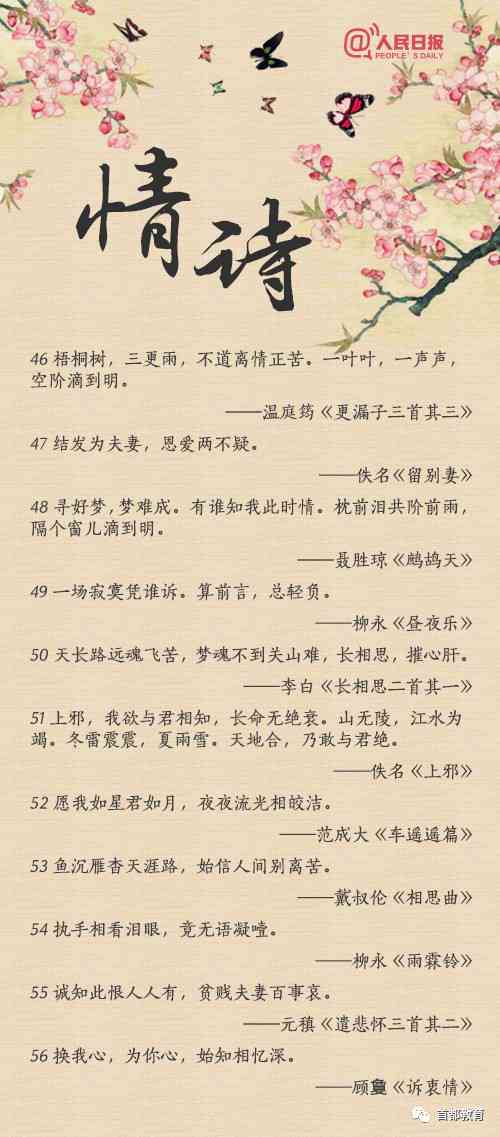 人民日报
PEOPLE'S DAILY
情诗
46 梧桐树，三更雨，不道离情正苦。一叶叶，一声声，
空阶滴到明。
——温庭筠《更漏子三首其三》
47 结发为夫妻，恩爱两不疑。
——佚名《留别妻》
48 寻好梦，梦难成。有谁知我此时情。枕前泪共阶前雨，
隔个窗儿滴到明。
——聂胜琼《鹧鸪天》
49 一场寂寞凭谁诉。算前言，总轻负。
——柳永《昼夜乐》
50 天长路远魂飞苦，梦魂不到关山难，长相思，摧心肝。
——李白《长相思二首其一》
51 上邪，我欲与君相知，长命无绝衰。山无陵，江水为
竭。冬雷震震，夏雨雪。天地合，乃敢与君绝。
——佚名《上邪》
52 愿我如星君如月，夜夜流光相皎洁。
——范成大《车遥遥篇》
53 鱼沉雁杳天涯路，始信人间别离苦。
——戴叔伦《相思曲》
54 执手相看泪眼，竟无语凝噎。
——柳永《雨霖铃》
55 诚知此恨人人有，贫贱夫妻百事哀。
——元稹《遣悲怀三首其二》
56 换我心，为你心，始知相忆深。
——顾敻《诉衷情》
首都教育